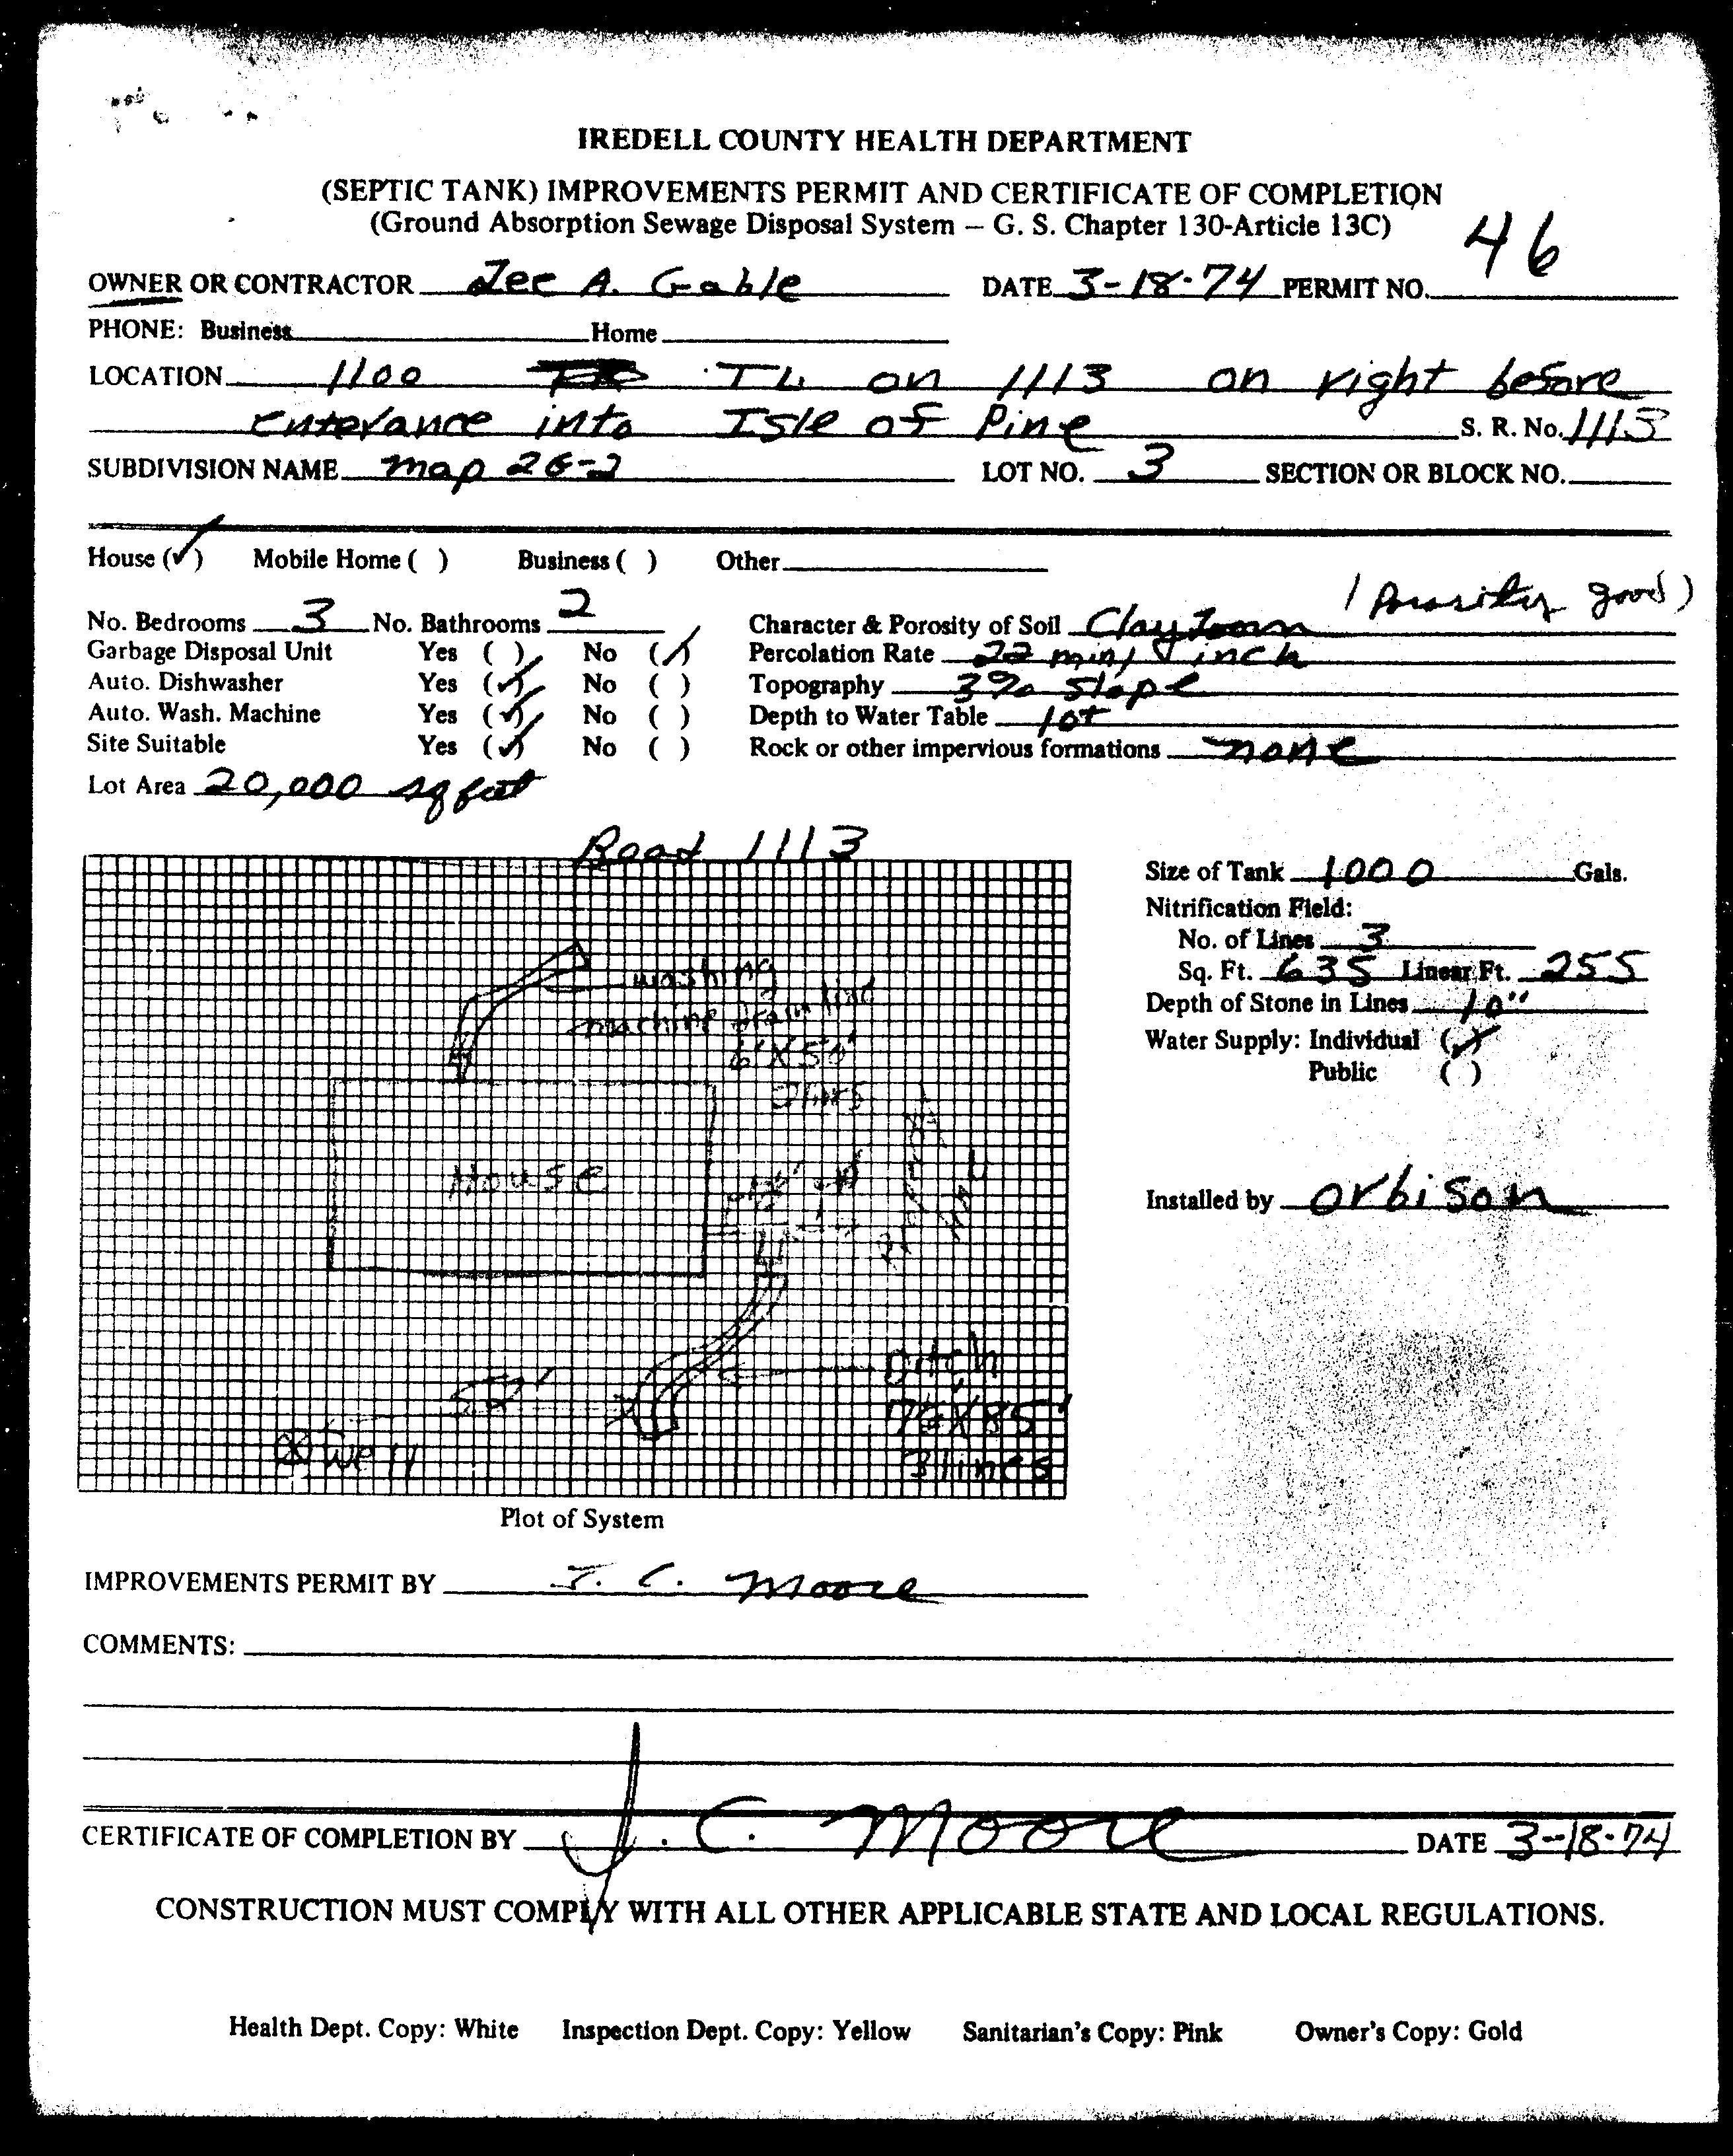 IREDELL COUNTY HEALTH DEPARTMENT
(SEPTIC TANK) IMPROVEMENTS PERMIT AND CERTIFICATE OF COMPLETION
(Ground Absorption Sewage Disposal System – G. S. Chapter 130-Article 13C)
OWNER OR CONTRACTOR Lee A. Gable DATE 3-18-74 PERMIT NO. 46
PHONE: Business Home
LOCATION 1100 TL on 1113 on right before
enterance into Isle of Pine S. R. No. 1113
SUBDIVISION NAME map 26-2 LOT NO. 3 SECTION OR BLOCK NO.
House (✓) Mobile Home ( ) Business ( ) Other
No. Bedrooms 3 No. Bathrooms 2 Character & Porosity of Soil Clay Loam (Porosity good)
Garbage Disposal Unit Yes ( ) No (✓) Percolation Rate 22 min/inch
Auto. Dishwasher Yes (✓) No ( ) Topography 3% slope
Auto. Wash. Machine Yes (✓) No ( ) Depth to Water Table 10+
Site Suitable Yes (✓) No ( ) Rock or other impervious formations none
Lot Area 20,000 sq feet
Road 1113
Size of Tank 1000 Gals.
Nitrification Field:
No. of Lines 3
Sq. Ft. 635 Linear Ft. 255
Depth of Stone in Lines 10"
Water Supply: Individual (✓)
Public ( )
Installed by Orbison
washing
machine drain line
6'X50'
2 lines
House
Ditch
52'
7½'X85'
⊗ Well
3 lines
Plot of System
IMPROVEMENTS PERMIT BY J. C. Moore
COMMENTS:
CERTIFICATE OF COMPLETION BY J. C. Moore DATE 3-18-74
CONSTRUCTION MUST COMPLY WITH ALL OTHER APPLICABLE STATE AND LOCAL REGULATIONS.
Health Dept. Copy: White Inspection Dept. Copy: Yellow Sanitarian's Copy: Pink Owner's Copy: Gold